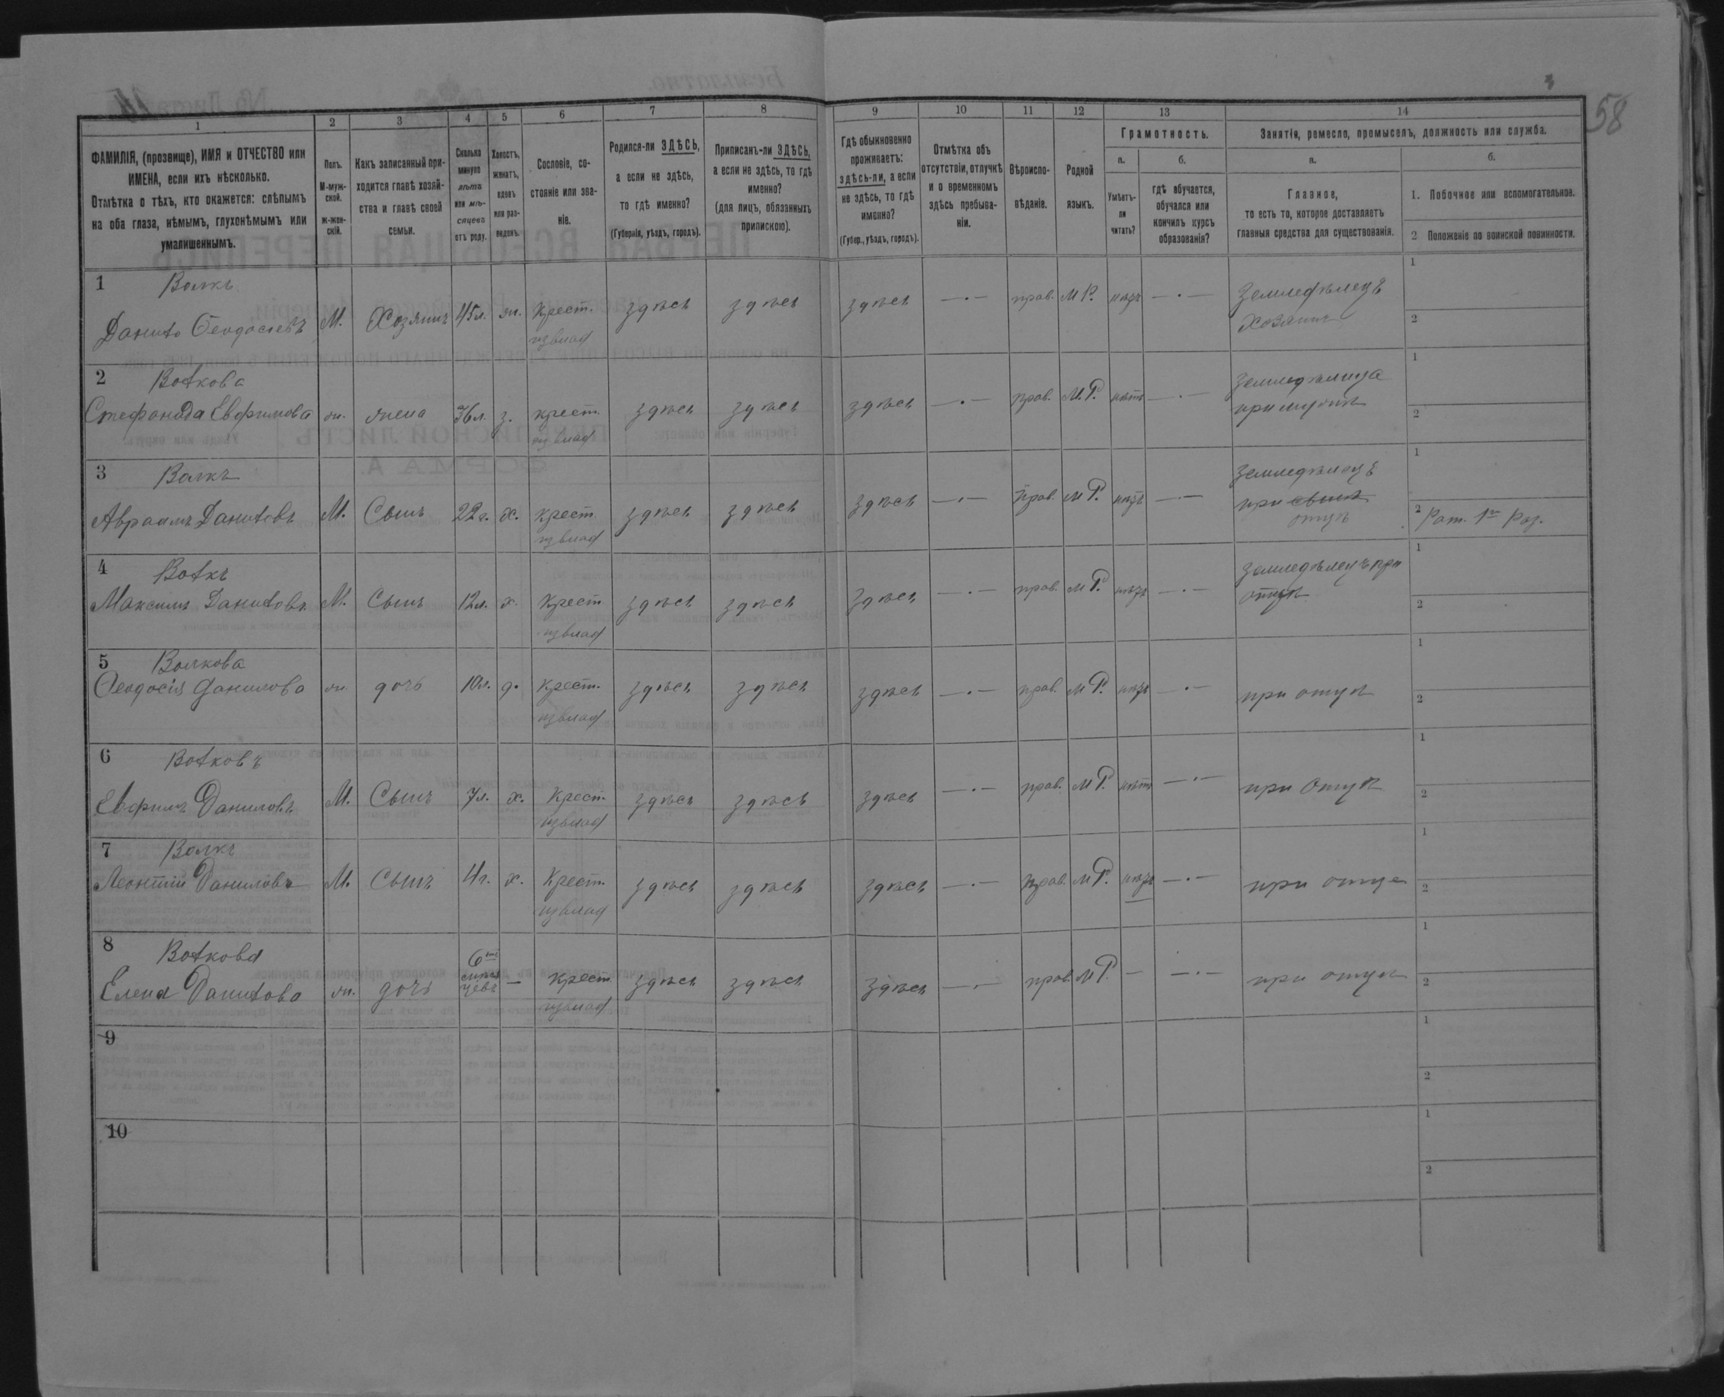 58
1 2 3 4 5 6 7 8 9 10 11 12 13 14
ФАМИЛІЯ, (прозвище), ИМЯ и ОТЧЕСТВО или ИМЕНА, если ихъ нѣсколько.
Отмѣтка о тѣхъ, кто окажется: слѣпымъ на оба глаза, нѣмымъ, глухонѣмымъ или умалишеннымъ.
Полъ. М-мужской. Ж-женскій.
Какъ записанный приходится главѣ хозяйства и главѣ своей семьи.
Сколько минуло лѣтъ или мѣсяцевъ отъ роду.
Холостъ, женатъ, вдовъ или разведенъ.
Сословіе, состояніе или званіе.
Родился-ли ЗДѢСЬ, а если не здѣсь, то гдѣ именно?
(Губернія, уѣздъ, городъ).
Приписанъ-ли ЗДѢСЬ, а если не здѣсь, то гдѣ именно?
(для лицъ, обязанныхъ припискою).
Гдѣ обыкновенно проживаетъ: здѣсь-ли, а если не здѣсь, то гдѣ именно?
(Губер., уѣздъ, городъ).
Отмѣтка объ отсутствіи, отлучкѣ и о временномъ здѣсь пребываніи.
Вѣроисповѣданіе.
Родной языкъ.
Грамотность.
а. Умѣетъ-ли читать?
б. гдѣ обучается, обучался или кончилъ курсъ образованія?
Занятіе, ремесло, промыселъ, должность или служба.
а. Главное, то есть то, которое доставляетъ главныя средства для существованія.
б.
1. Побочное или вспомогательное.
2 Положеніе по воинской повинности.
1 Волкъ
Данило Ѳеодосіевъ М. Хозяинъ 45 л. ж. Крест. здѣсь здѣсь здѣсь —·— прав. М Р. нѣтъ —·— Земледѣлецъ
хозяинъ
1
2
2 Волкова
Стефанида Евфимова ж. жена 36 л. з. крест. здѣсь здѣсь здѣсь —·— прав. М.Р. нѣтъ —·— земледѣлица
при мужѣ
1
2
3 Волкъ
Авраамъ Даниловъ М. Сынъ 22 г. х. крест. здѣсь здѣсь здѣсь —·— Прав. М Р. нѣтъ —·— земледѣлецъ
при
отцѣ
1
2 Рат. 1го Раз.
4 Волкъ
Максимъ Даниловъ М. Сынъ 12 л. х. Крест. здѣсь здѣсь здѣсь —·— прав. М Р. нѣтъ —·— земледѣлецъ при
отцѣ
1
2
5 Волкова
Ѳеодосія Данилова ж. дочь 10 л. д. Крест. здѣсь здѣсь здѣсь —·— прав. М Р. нѣтъ —·— при отцѣ
1
2
6 Волковъ
Евфимъ Даниловъ М. Сынъ 7 л. х. Крест. здѣсь здѣсь здѣсь —·— прав. М Р. нѣтъ —·— при Отцѣ
1
2
7 Волкъ
Леонтій Даниловъ М. Сынъ 4 г. х. Крест. здѣсь здѣсь здѣсь —·— прав. М Р. нѣтъ —·— при отцѣ
1
2
8 Волкова
Елена Данилова ж. дочь 6 — крест. здѣсь здѣсь здѣсь —·— прав. М Р. — —·— при отцѣ
1
2
9
1
2
10
1
2